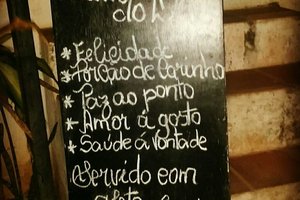 do
* Felicidade
* Porção de Carinho
* Paz ao ponto
* Amor á gosto
* Saúde á vontade
Servido com